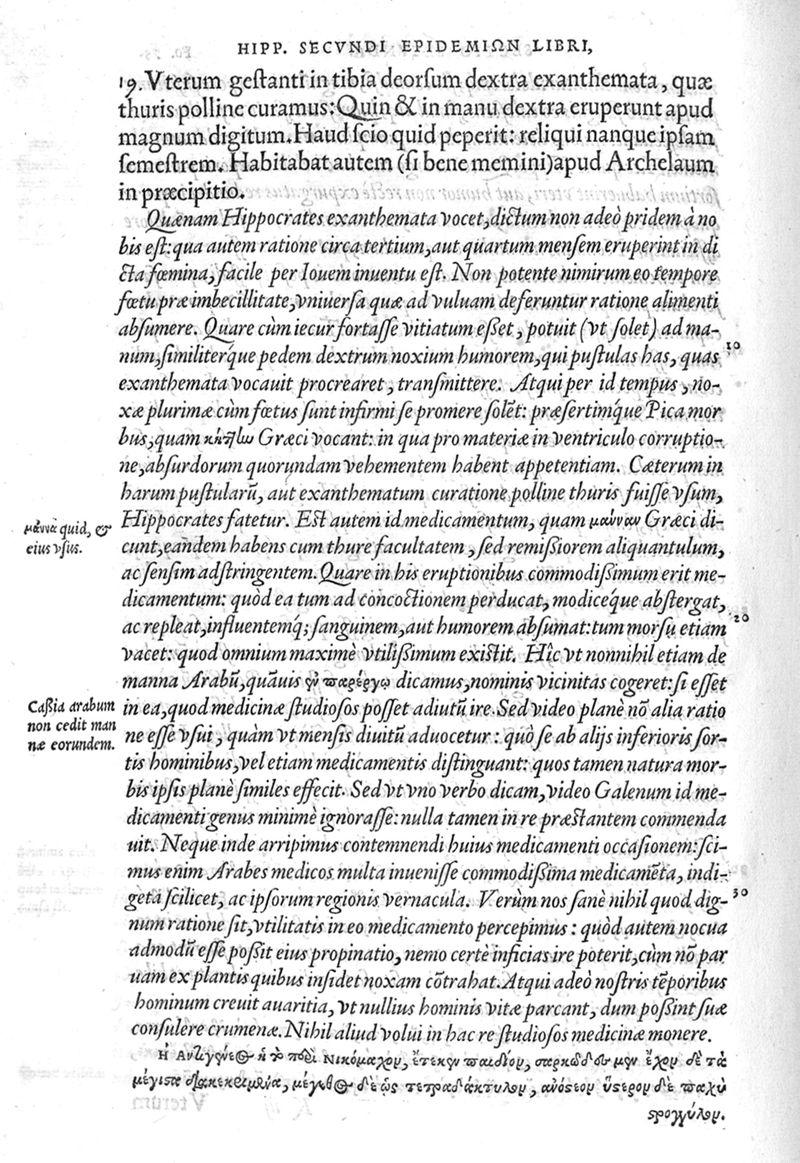 HIPP. SECVNDI EPIDEMIΩN LIBRI,
19. Vterum gestanti in tibia deorsum dextra exanthemata, quæ
thuris polline curamus: Quin & in manu dextra eruperunt apud
magnum digitum. Haud scio quid peperit: reliqui nanque ipsam
semestrem. Habitabat autem (si bene memini) apud Archelaum
in præcipitio.
Quænam Hippocrates exanthemata vocet, dictum non adeò pridem à no
bis est: qua autem ratione circa tertium, aut quartum mensem eruperint in di
cta fœmina, facile per Iouem inuentu est. Non potente nimirum eo tempore
fœtu præ imbecillitate, vniuersa quæ ad vuluam deferuntur ratione alimenti
absumere. Quare cùm iecur fortasse vitiatum esset, potuit (vt solet) ad ma-
num, similiterq́ue pedem dextrum noxium humorem, qui pustulas has, quas
10
exanthemata vocauit procrearet, transmittere. Atqui per id tempus, no-
xæ plurimæ cùm fœtus sunt infirmi se promere solẽt: præsertimq́ue Pica mor
bus, quam κίτ]αν Græci vocant: in qua pro materiæ in ventriculo corruptio-
ne, absurdorum quorundam vehementem habent appetentiam. Cæterum in
harum pustularũ, aut exanthematum curatione polline thuris fuisse vsum,
μάννα quid, &
eius vsus.
Hippocrates fatetur. Est autem id medicamentum, quam μάνναν Græci di-
cunt, eandem habens cum thure facultatem, sed remissiorem aliquantulum,
ac sensim adstringentem. Quare in his eruptionibus commodissimum erit me-
dicamentum: quòd ea tum ad concoctionem perducat, modiceq́ue abstergat,
ac repleat, influentemq́; sanguinem, aut humorem absumat: tum morsu etiam
20
vacet: quod omnium maximè vtilissimum existit. Hîc vt nonnihil etiam de
manna Arabũ, quãuis ἐν παρέργῳ dicamus, nominis vicinitas cogeret: si esset
Cassia arabum
non cedit man
næ eorundem.
in ea, quod medicinæ studiosos posset adiutũ ire. Sed video planè nõ alia ratio
ne esse vsui, quàm vt mensis diuitũ aduocetur: quò se ab alijs inferioris sor-
tis hominibus, vel etiam medicamentis distinguant: quos tamen natura mor-
bis ipsis planè similes effecit. Sed vt vno verbo dicam, video Galenum id me-
dicamenti genus minimè ignorasse: nulla tamen in re præstantem commenda
uit. Neque inde arripimus contemnendi huius medicamenti occasionem: sci-
mus enim Arabes medicos multa inuenisse commodissima medicamẽta, indi-
geta scilicet, ac ipsorum regionis vernacula. Verùm nos sanè nihil quod dig-
30
num ratione sit, vtilitatis in eo medicamento percepimus: quòd autem nocua
admodũ esse possit eius propinatio, nemo certè inficias ire poterit, cùm nõ par
uam ex plantis quibus insidet noxam cõtrahat. Atqui adeò nostris tẽporibus
hominum creuit auaritia, vt nullius hominis vitæ parcant, dum possint suæ
consulere crumenæ. Nihil aliud volui in hac re studiosos medicinæ monere.
Η Αντιγένεος ἡ τὸ περὶ Νικομάχου, ἔτεκεν παιδίον, σαρκῶδες μὲν ἔχον δὲ τὰ
μέγιστα διακεκριμένα, μέγεθος δὲ ὡς τετραδάκτυλον, ἀνόστεον ὕστερον δὲ παχὺ
στρογγύλον.